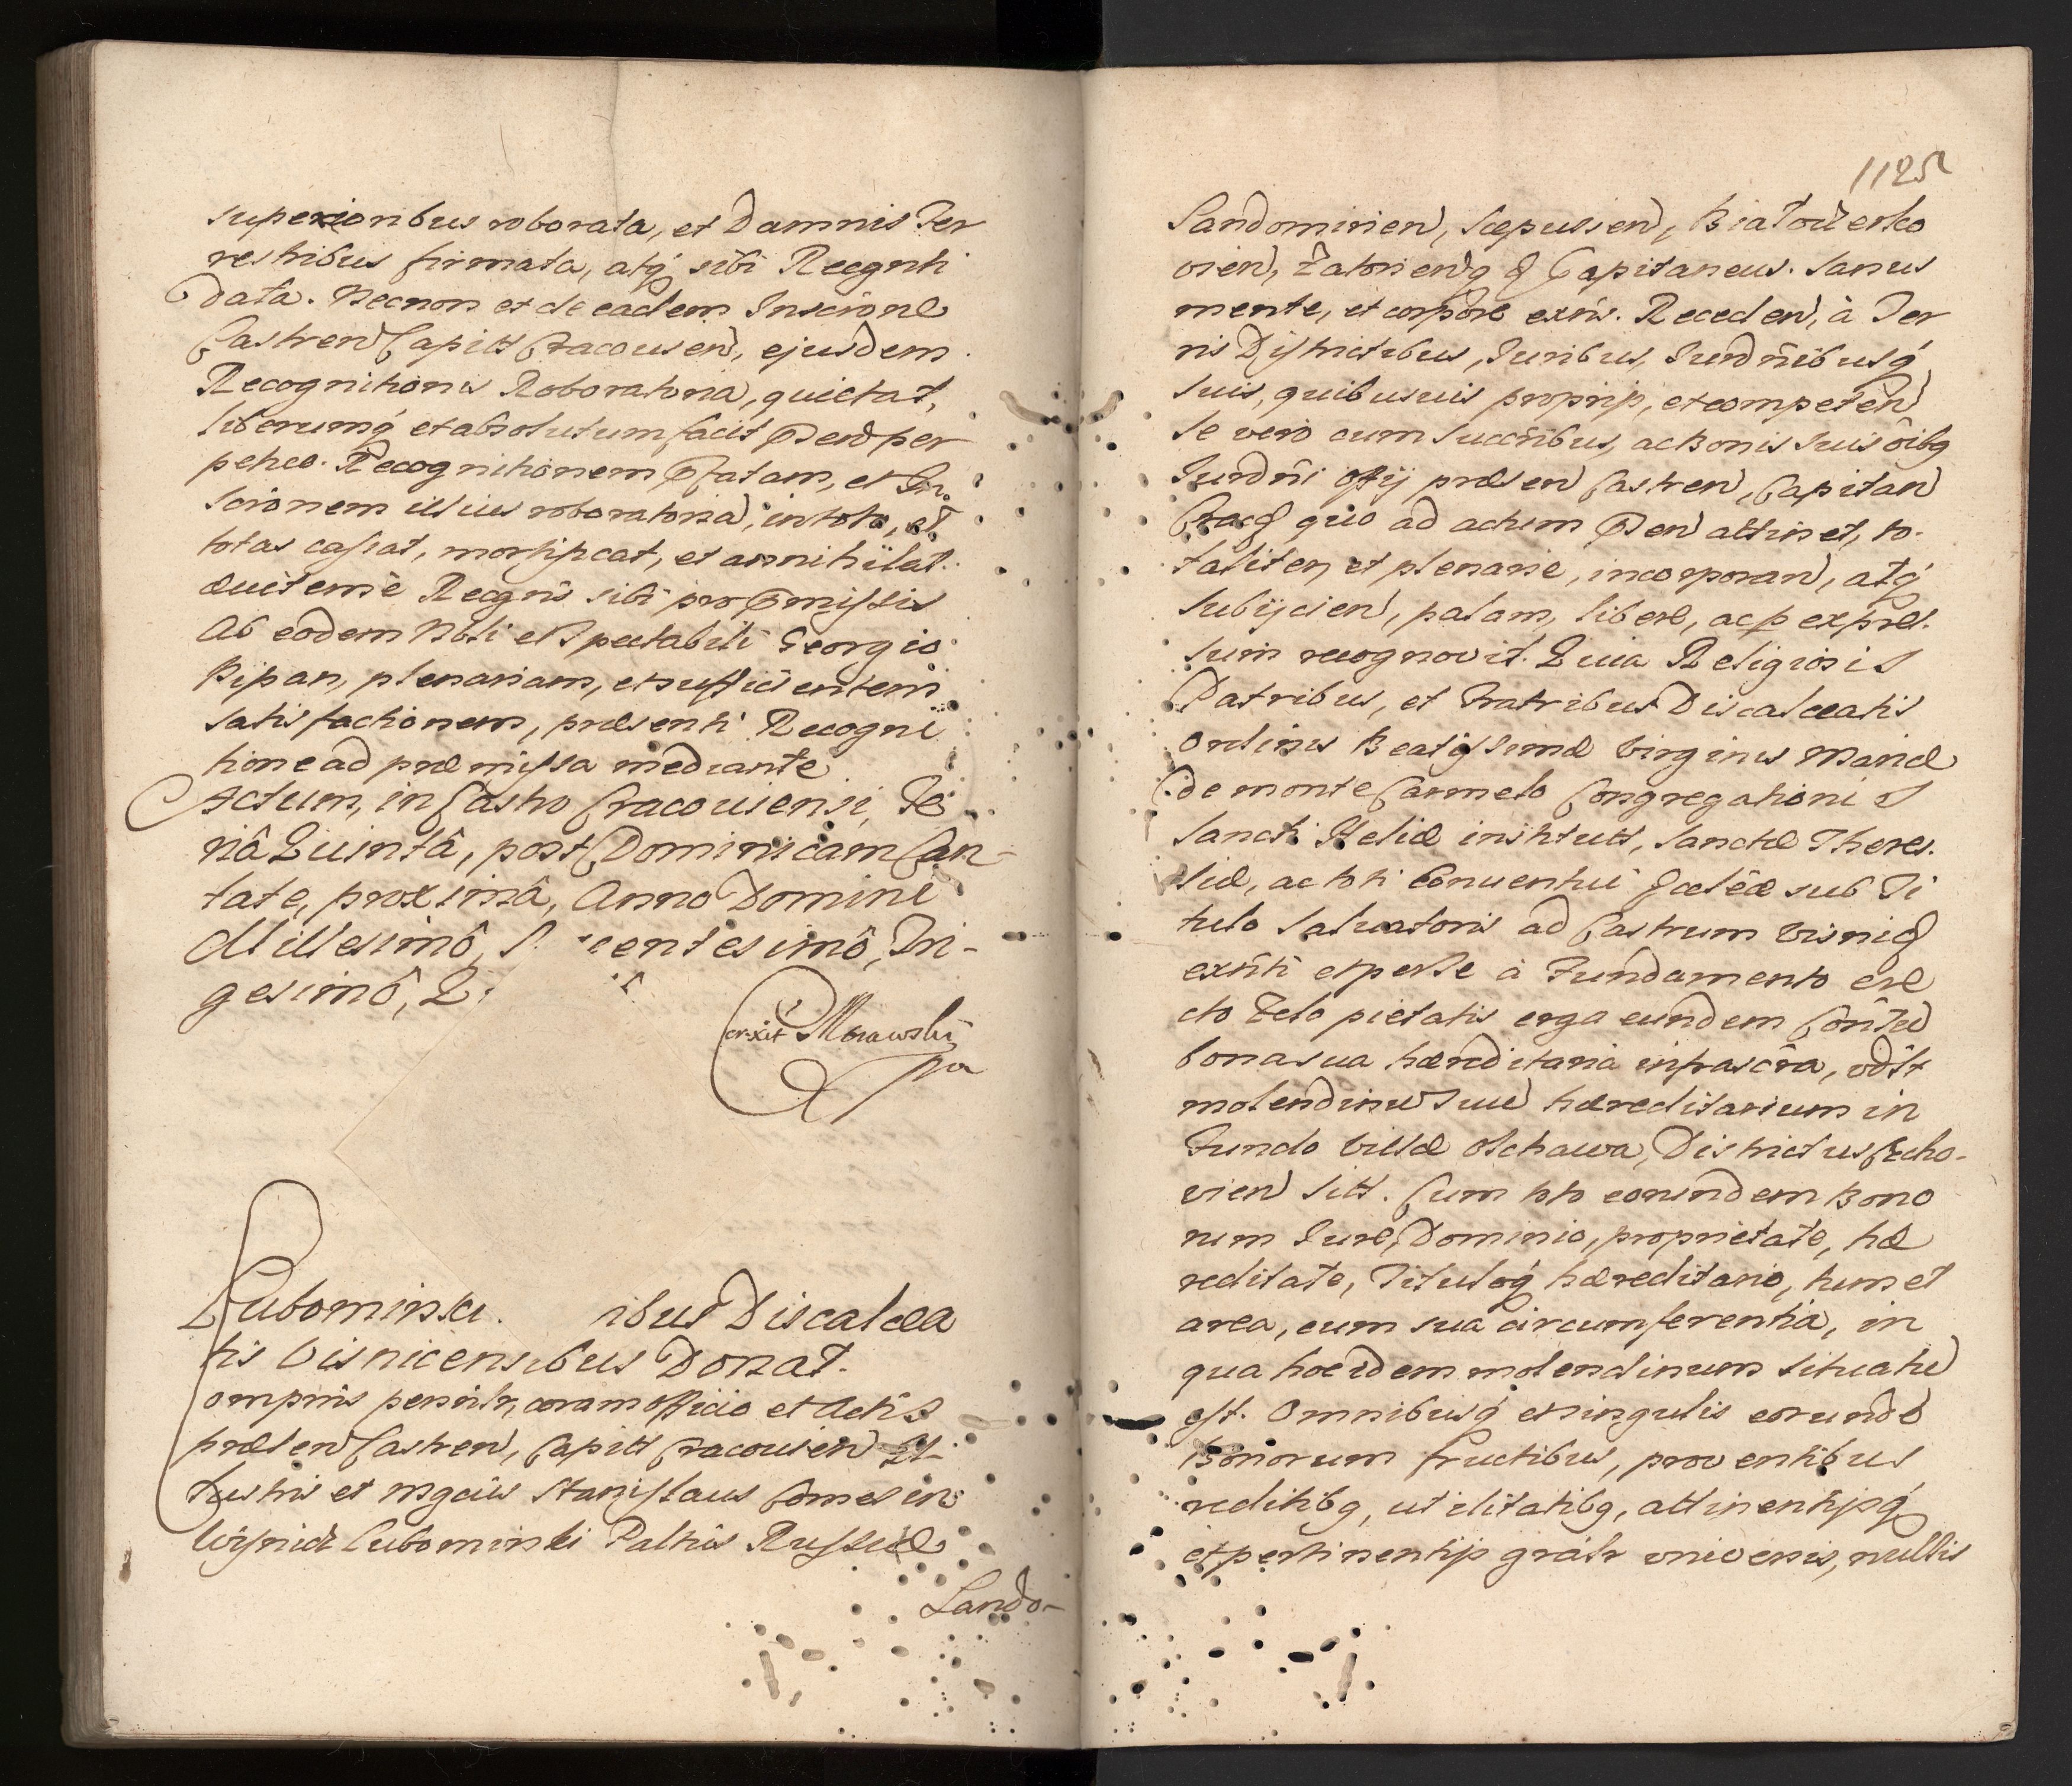 superioribus roborata, et Damnis Ter
restribus firmata, atq sibi Recgnti
data. Necnon et de eadem Inscrõne
Castren Capitt Cracovien, ejusdem
Recognitionis Roboratoria, quietat,
liberumq et absolutum facit Pen per
petuo. Recognitionem Pfatam, et In
scrõnem illius roboratoria, in toto, et
totas cassat, mortificat, et annihilat.
Recgñs sibi pro Pmissis
Ab eodem Nbli et Spectabili Georgio
Pipan, plenariam, et sufficientem
satisfactionem, præsenti Recogni
tione ad præmissa mediante
Actum, in Castro Cracoviensi, Fe
riâ Quintâ, post Dominicam Can-
tate, proximâ, Anno Domini
Millesimô, S entesimô, Tri-
gesimô, Q
corxit Morawski
Lubomirski ibus Discalcea
tis Visnicensibus Donat.
omprñs persnlr, coram Officio et Actis
præsen Castren, Capitt Cracovien Il-
lustris et Mgcus Stanislaus Comes in
Wisnicz Lubomirski Palnus Russiæ
Sando-
1125
Sandomirien, Scepusien, Białocerko
vien, Zatorienq & Capitaneus. Sanus
mente, et corpore exñs. Receden, à Ter
ris Districtibus, Juribus, Jurdnibusq
suis, quibusuis proprijs, et competen
Se vero cum Succribus, ac Bonis suis oibq
Jurdni Offij præsen Castren, Capitan
Crac quo ad actum Pen attinet, to-
taliter, et plenarie, incorporan, atq
subijcien, palam, libere, acp expres-
sum recognovit. Quia Religiosis
Patribus, et Fratribus Discalceatis
Ordinis Beatissimæ Virginis Mariæ
de monte Carmelo Congregationis
Sancti Heliæ instituti, Sanctæ There-
siæ, ac toti Conventui Eccleæ sub Ti
tulo Salvatoris ad Castrum Visnic
exñti et per se à Fundamento ere
cto Zelo pietatis erga eundem Contu
bona sua hæreditaria infrascra, vdlt
molendinu suu hæreditarium in
Fundo villæ Olchawa, Districtus Czcho-
vien sitt. Cum toto eorundem Bono
rum Jure, Dominio, proprietate, hæ
reditate, Tituloq hæreditario, tum et
area, cum sua circumferentia, in
qua hoc idem molendinum situatu
est. Omnibusq et singulis eorunde
Bonorum fructibus, proventibus
reditibq, utilitatibq, attinentijsq
et pertinentijs gnalr vniversis, nullis